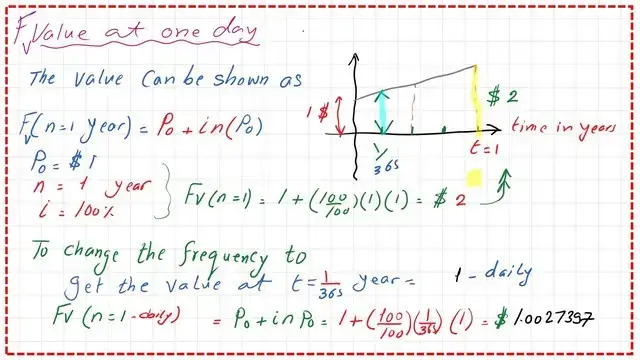 Fv Value at one day
The value can be shown as
Fv(n=1 year) = P₀ + in(P₀)
P₀ = $1
n = 1 year
i = 100%
Fv(n=1) = 1 + (100/100)(1)(1) = $ 2
1 $
1/365
$ 2
time in years
t=1
To change the frequency to
get the value at t = 1/365 year = 1 - daily
Fv (n=1-daily) = P₀ + in P₀ = 1 + (100/100)(1/365)(1) = $ 1.0027397